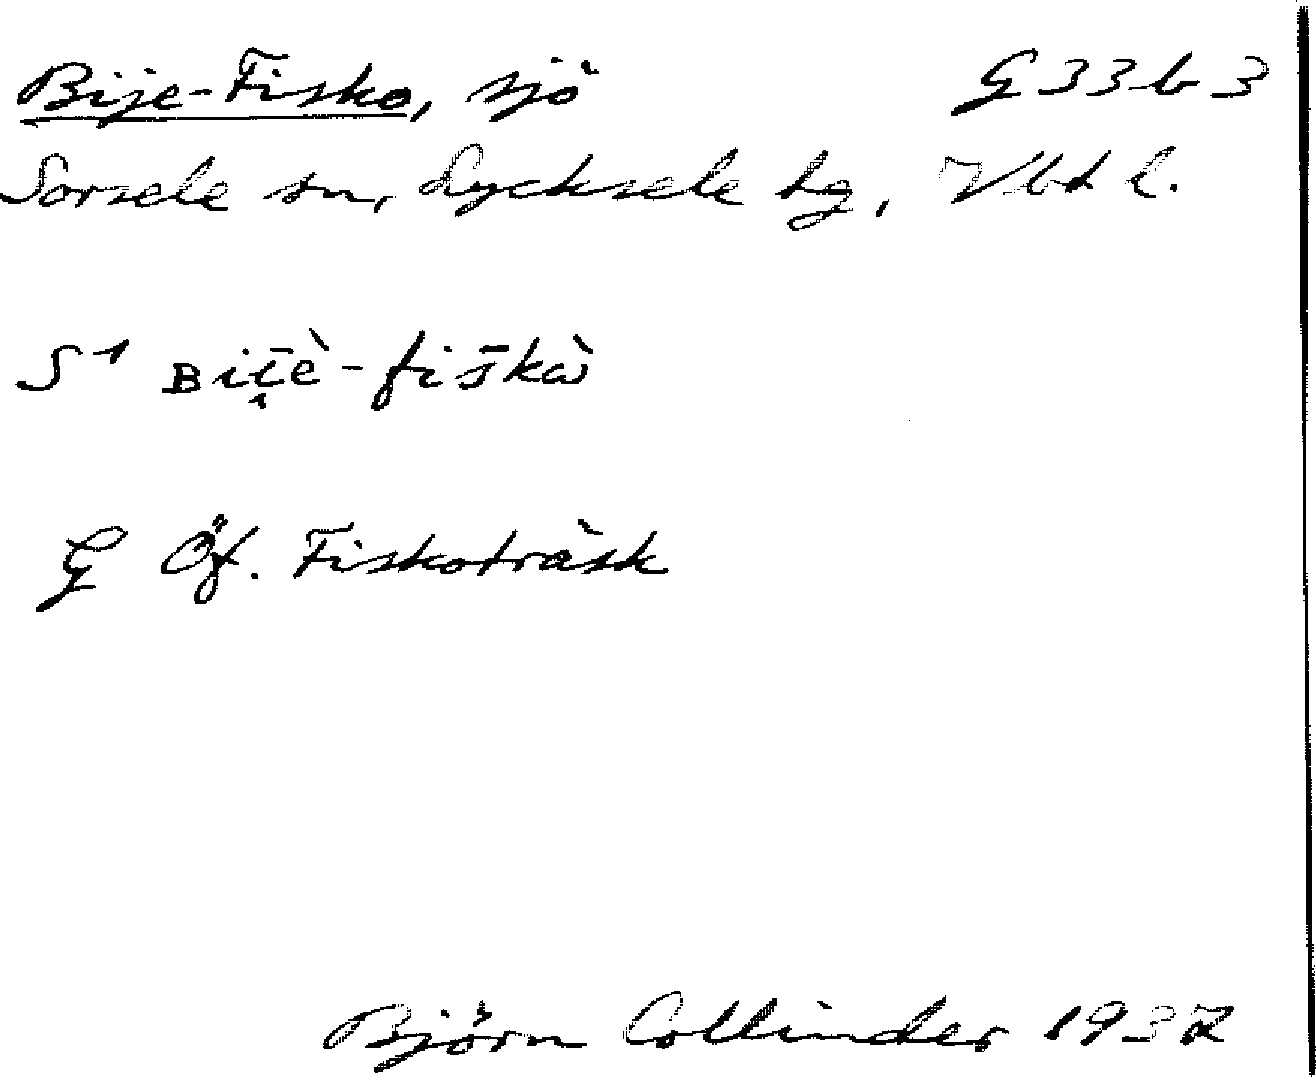 Bije-Fisko, sjö G 33 b 3
Sorsele sn, Lycksele lg, Vbtl.
S1 ʙiī̯è-fis̄kὰ
G Öf. Fiskoträsk
Björn Collinder 1937